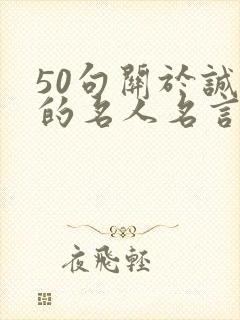 50句關於誠
的名人名言
夜飛輕